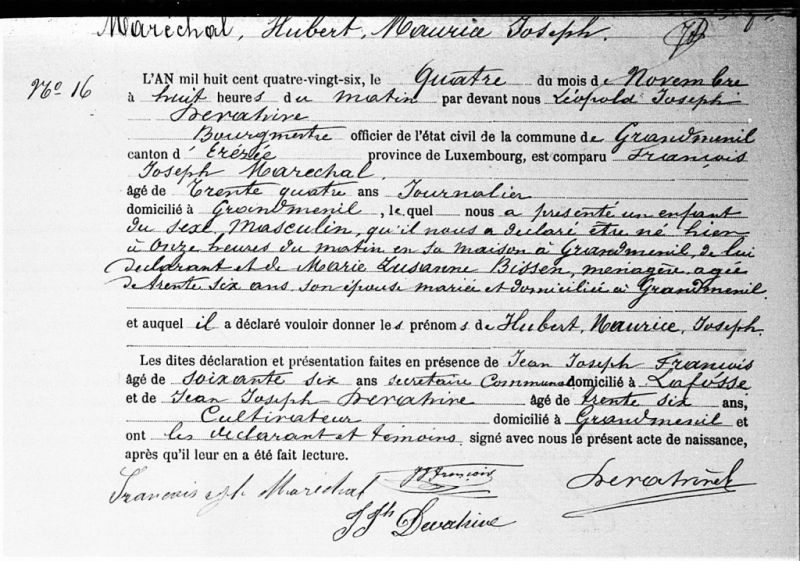 Maréchal, Hubert, Maurice Joseph.
No 16
L'AN mil huit cent quatre-vingt-six, le Quatre du mois de Novembre
à huit heures du matin par devant nous Léopold Joseph
Devahive
Bourgmestre officier de l'état civil de la commune de Grandmenil
canton d' Erézée province de Luxembourg, est comparu François
Joseph Marechal
âgé de Trente quatre ans Journalier
domicilié à Grandmenil, le quel nous a présenté un enfant
du sexe Masculin, qu'il nous a déclaré être né hier
à Onze heures du matin en sa maison à Grandmenil, de lui
declarant et de Marie Susanne Bissen, menagère, agée
de trente six ans, son épouse mariée et domiciliée à Grandmenil.
et auquel il a déclaré vouloir donner les prénoms de Hubert, Maurice, Joseph.
Les dites déclaration et présentation faites en présence de Jean Joseph François
âgé de soixante six ans secretaire Communal domicilié à Lafosse
et de Jean Joseph Devahive âgé de trente six ans,
Cultivateur domicilié à Grandmenil et
ont les declarant et témoins signé avec nous le présent acte de naissance,
après qu'il leur en a été fait lecture.
François Jph Maréchal JJ François
JJh Devahive